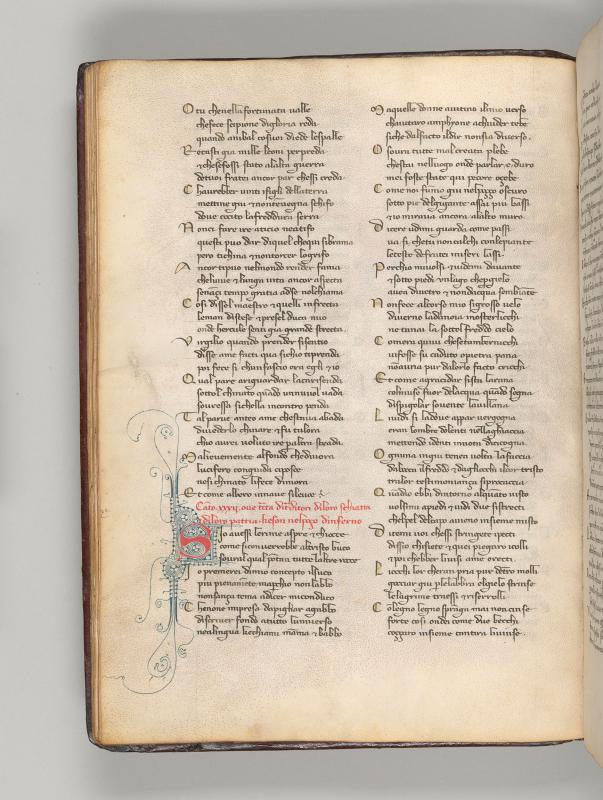 O tu chenella fortunata ualle
chefece scipione digloria reda
quando anibal cosuoi diede lespalle
R ecasti gia mille leoni perpreda
et chesefossi stato alalta guerra
detuoi fratei ancor par chessi creda
C haurebber uinti ifigli dellaterra
mettine giu et nontevegna schifo
doue cocito lafreddura serra
N onci fare ire aticio neatifo
questi puo dar diquel chequi sibrama
pero tichina et nontorcer logrifo
A ncor tipuo nelmondo render fama
cheluiue et lunga uita ancor aspecta
senanzi tempo gratia adse nolchiama
C osi disse lmaestro et quelli infrecta
leman distese et prese lduca mio
onde hercule senti gia grande strecta
V irgilio quando prender sisentio
disse ame facti qua sichio tiprenda
poi fece si chunfascio era egli et io
Q ual pare ariguardar lacarisenda
sottol chinato quado unnuuol uada
souressa sichella incontro penda
T al parue anteo ame chestaua abada
diuederlo chinare et fu talora
chio aurei uoluto ire paltra strada
M alieuemente alfondo chediuora
lucifero congiuda ciposse
nesi chinato lifece dimora
E t come albero innaue sileuo
Cato xxxij. oue tcta ditraditori diloro schiatta
et diloro patria
S io auessi lerime aspre et chiocce
come siconuerrebbe altristo buco
soural qual pontan tutte laltre rocce
o premerei dimio concepto ilsuco
piu pienamente mapchio nonlabbo
nonsanza tema adicer miconduco
C henone impresa dapigliar agabbo
discriuer fondo atutto luniuerso
nealingua kechiami mama et babbo
M aquelle done aiutino ilmio uerso
chaiutaro amphyone achiuder tebe
siche dalfacto ildir nonsia diuerso
O soura tutte mal creata plebe
chestai nelluogo onde parlar e duro
mei foste state qui pecore ozebe
C ome noi fumo giu nelpozzo oscuro
sotto pie delgigante assai piu bassi
et io miraua ancora alalto muro
D icere udimi guarda come passi
ua si chetu noncalchi conlepiante
leteste defratei miseri lassi
P erchio miuolsi et uidemi dauante
et sotto piedi unlago chepgielo
auea diuetro et nondacqua sembiate
N onfece alcorso suo sigrosso uelo
diuerno ladanoia
ne tanai la sottol freddo cielo
C omera quiui chesetambernicchi
uifosse su caduto opietra pana
noauria pur dalorlo facto cricchi
E t come agracidar sista larana
colmuso fuor delacqua quado sogna
dispigolar souente lauillana
L iuidi si ladoue appar uergogna
eran lombre dolenti nellaghiaccia
mettendo identi innota dicicogna
O gnuna ingiu tenea uolta lafaccia
dabocca ilfreddo et dagliocchi ilcor tristo
tralor testimonianza siprocaccia
Q uadio ebbi dintorno alquanto uisto
uolsimi apiedi et uidi due sistrecti
chelpel delcapo aueno insieme misto
D itemi uoi chessi stringete ipecti
dissio chisiete et quei piegaro icolli
et poi chebber liuisi ame erecti
L iocchi lor cheran pria pur dentro molli
gocciar giu plelabbra elgielo strinse
le lagrime traessi et riserrolli
C olegno legno spranga mai noncinse
forte cosi ondei come due becchi
cozzaro insieme tantira liuinse